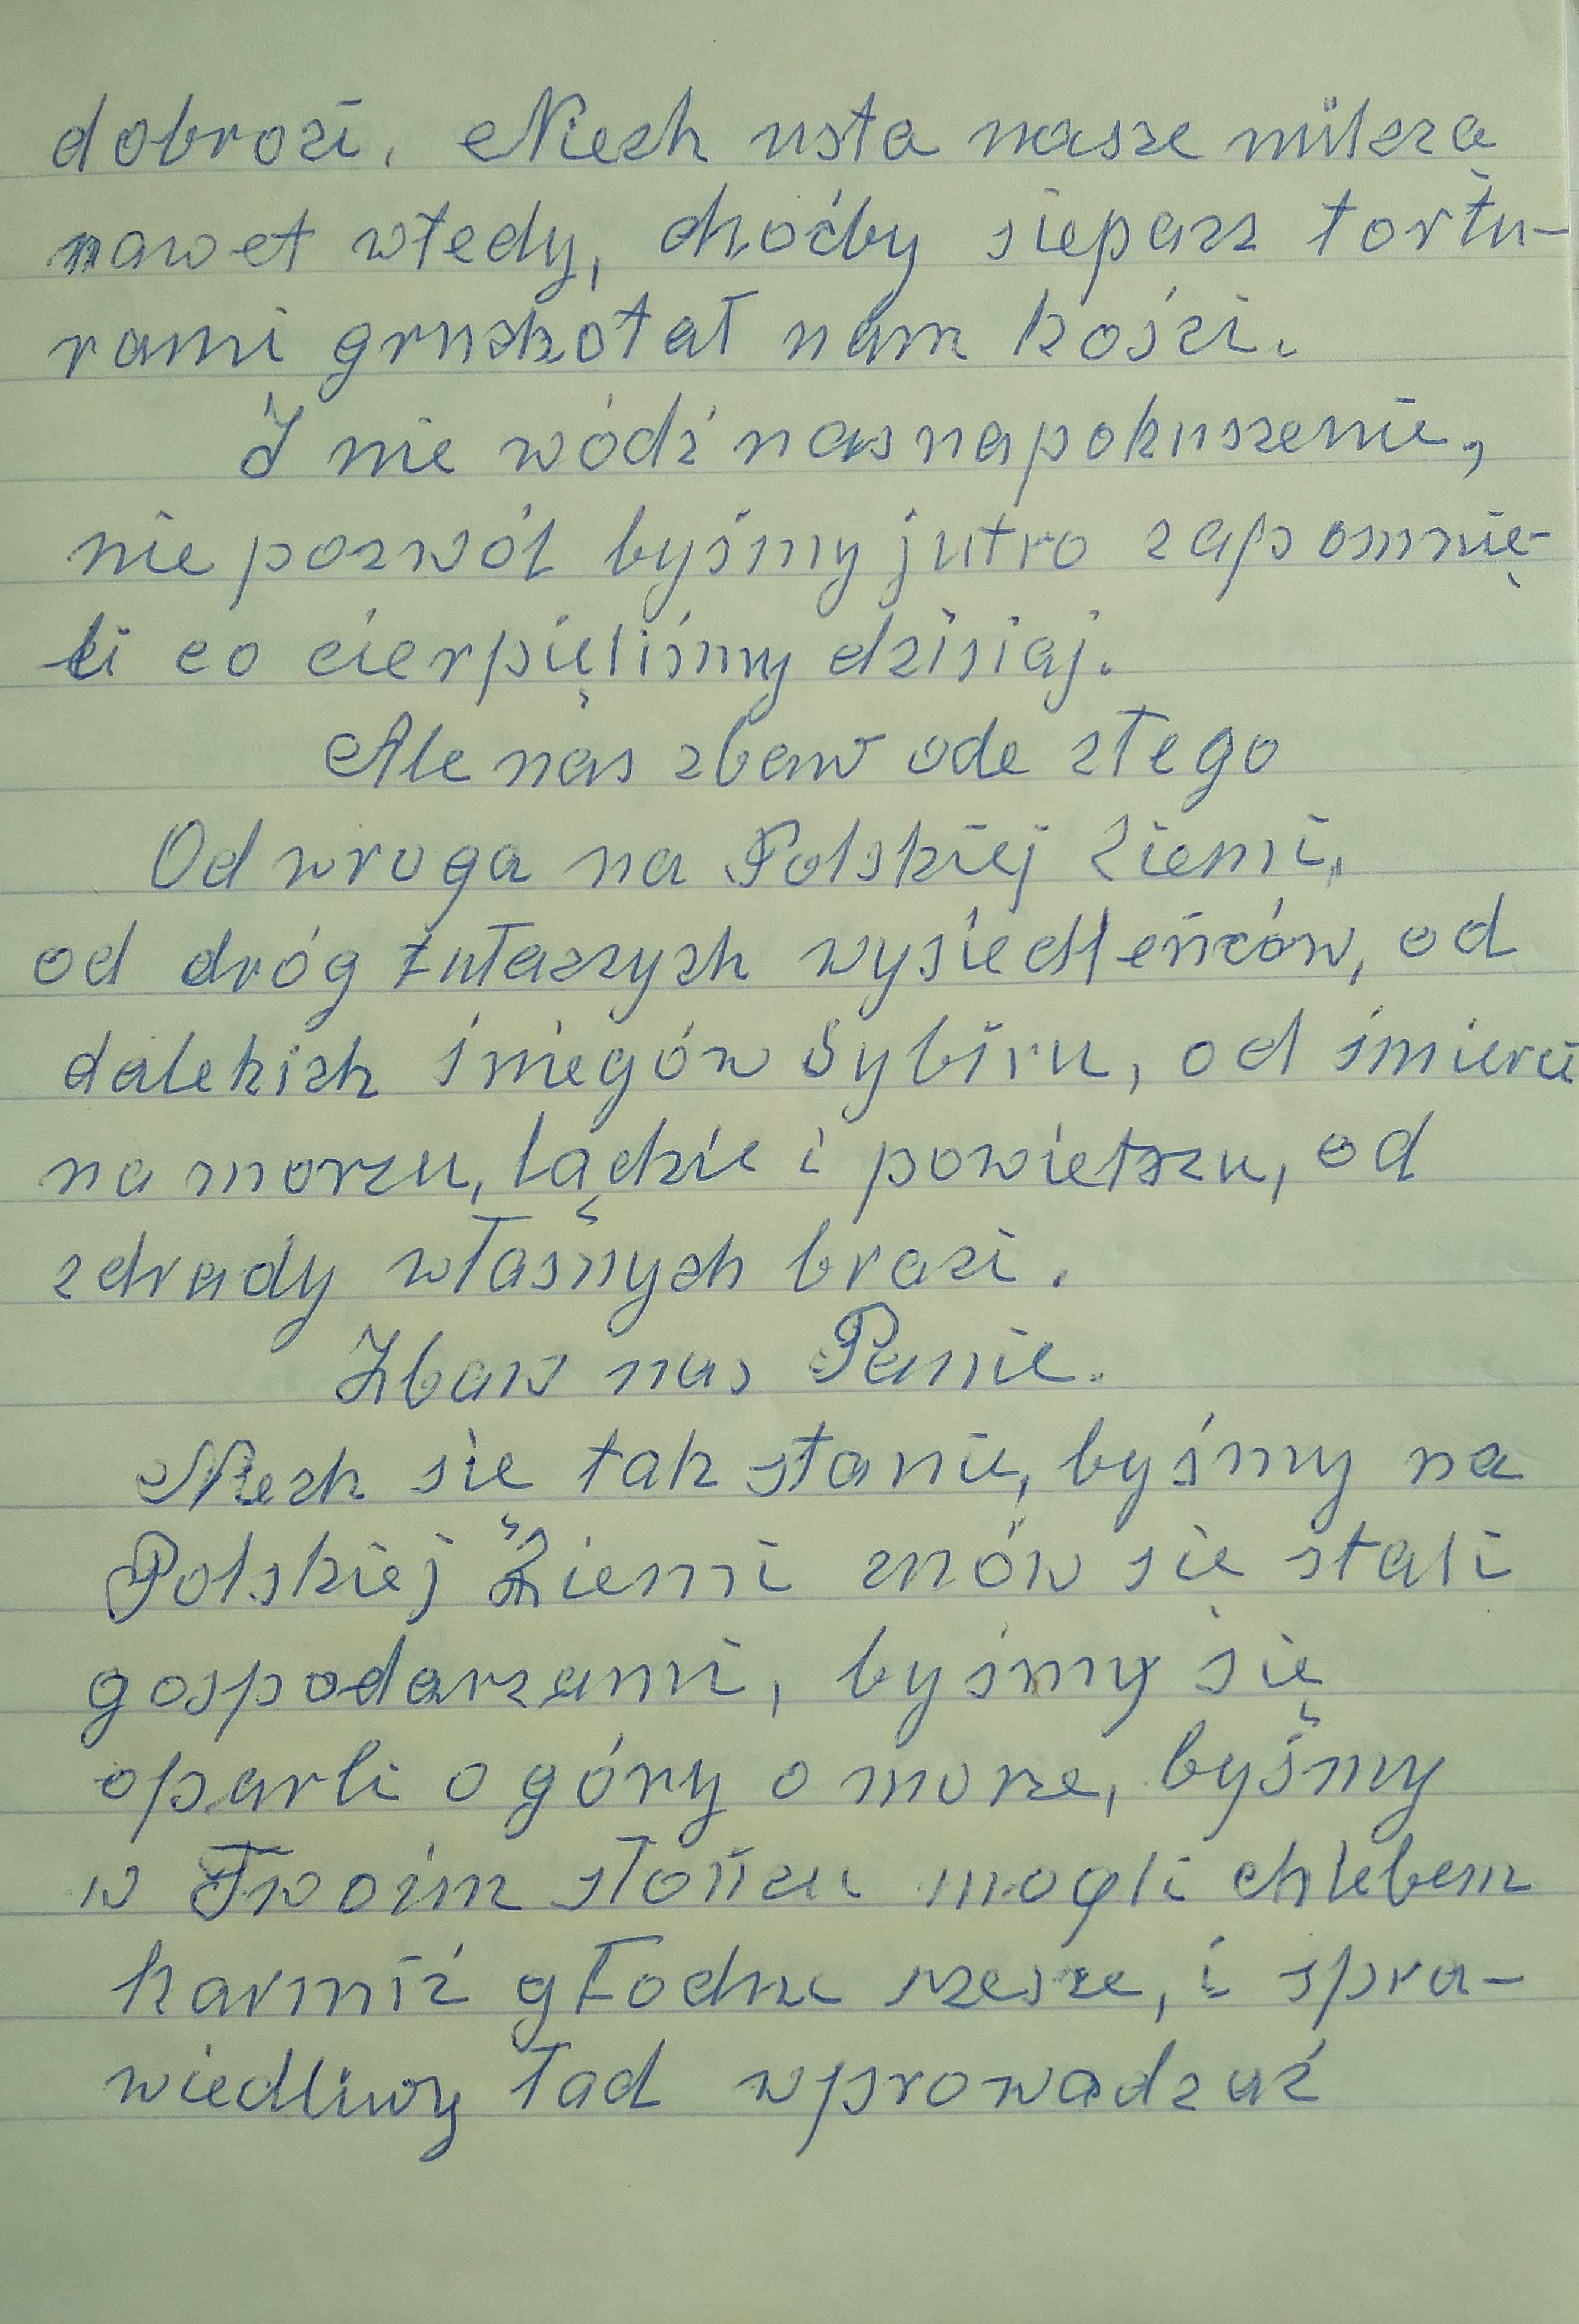 dobroci. Niech usta nasze milczą
nawet wtedy, choćby siepacz tortu-
rami gruchotał nam kości.
I nie wódź nas na pokuszenie,
nie pozwól byśmy jutro zapomnie-
li co cierpięliśmy dzisiaj.
Ale nas zbaw ode złego
Od wroga na Polskiej Ziemi,
od dróg tułaczych wysiedleńców, od
dalekich śniegów Sybiru, od śmierci
na morzu, lądzie i powietrzu, od
zdrady własnych braci.
Zbaw nas Panie.
Niech się tak stanie, byśmy na
Polskiej Ziemi znów się stali
gospodarzami, byśmy się
oparli o góry o morze, byśmy
w Twoim słońcu mogli chlebem
karmić głodne rzesze, i spra-
wiedliwy ład wprowadzać